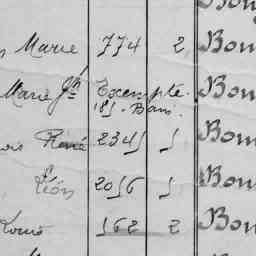 Bou
Marie 774 2 Bou
Marie Jn Exempte. Bou
René 2341 1 Bou
Léon 2016 1 Bou
Louis 162 2 Bou